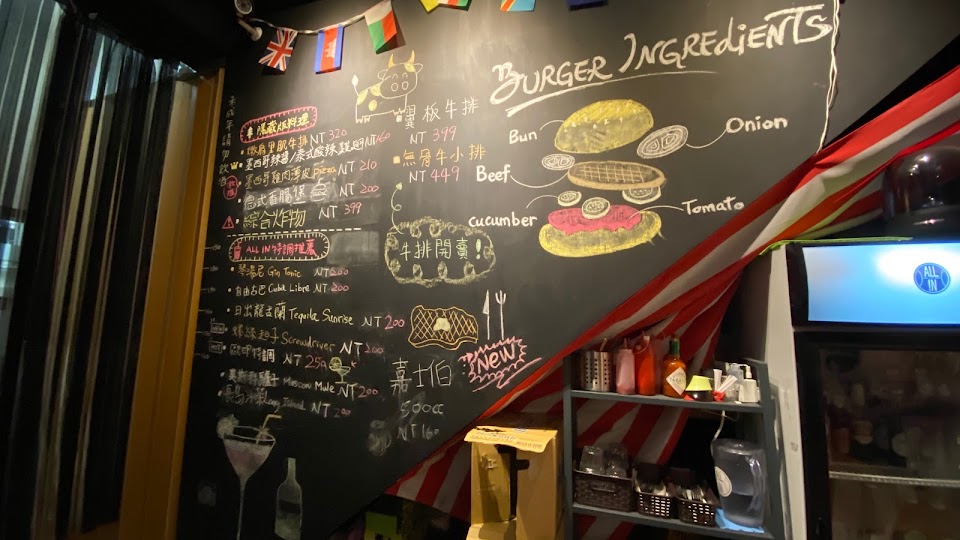 未成年請勿飲酒
隱藏版料理
嫩肩里肌牛排 NT 320
墨西哥辣醬/泰式酸辣 NT160
墨西哥雞肉薄皮pizza NT 210
德式香腸堡 NT 200
綜合炸物 NT 399
ALL IN 特調推薦
琴湯尼 Gin Tonic NT200
自由古巴 Cuba Libre NT 200
日出龍舌蘭 Tequila Sunrise NT 200
螺絲起子 Screwdriver NT 200
特調 NT 250
Moscow Mule NT 200
長島冰茶 Long Island NT 200
翼板牛排
NT 399
無骨牛小排
NT 449
牛排開賣!
NEW
嘉士伯
500cc
NT 160
BURGER INGREDIENTS
Bun
Onion
Beef
Cucumber
Tomato
ALL
IN